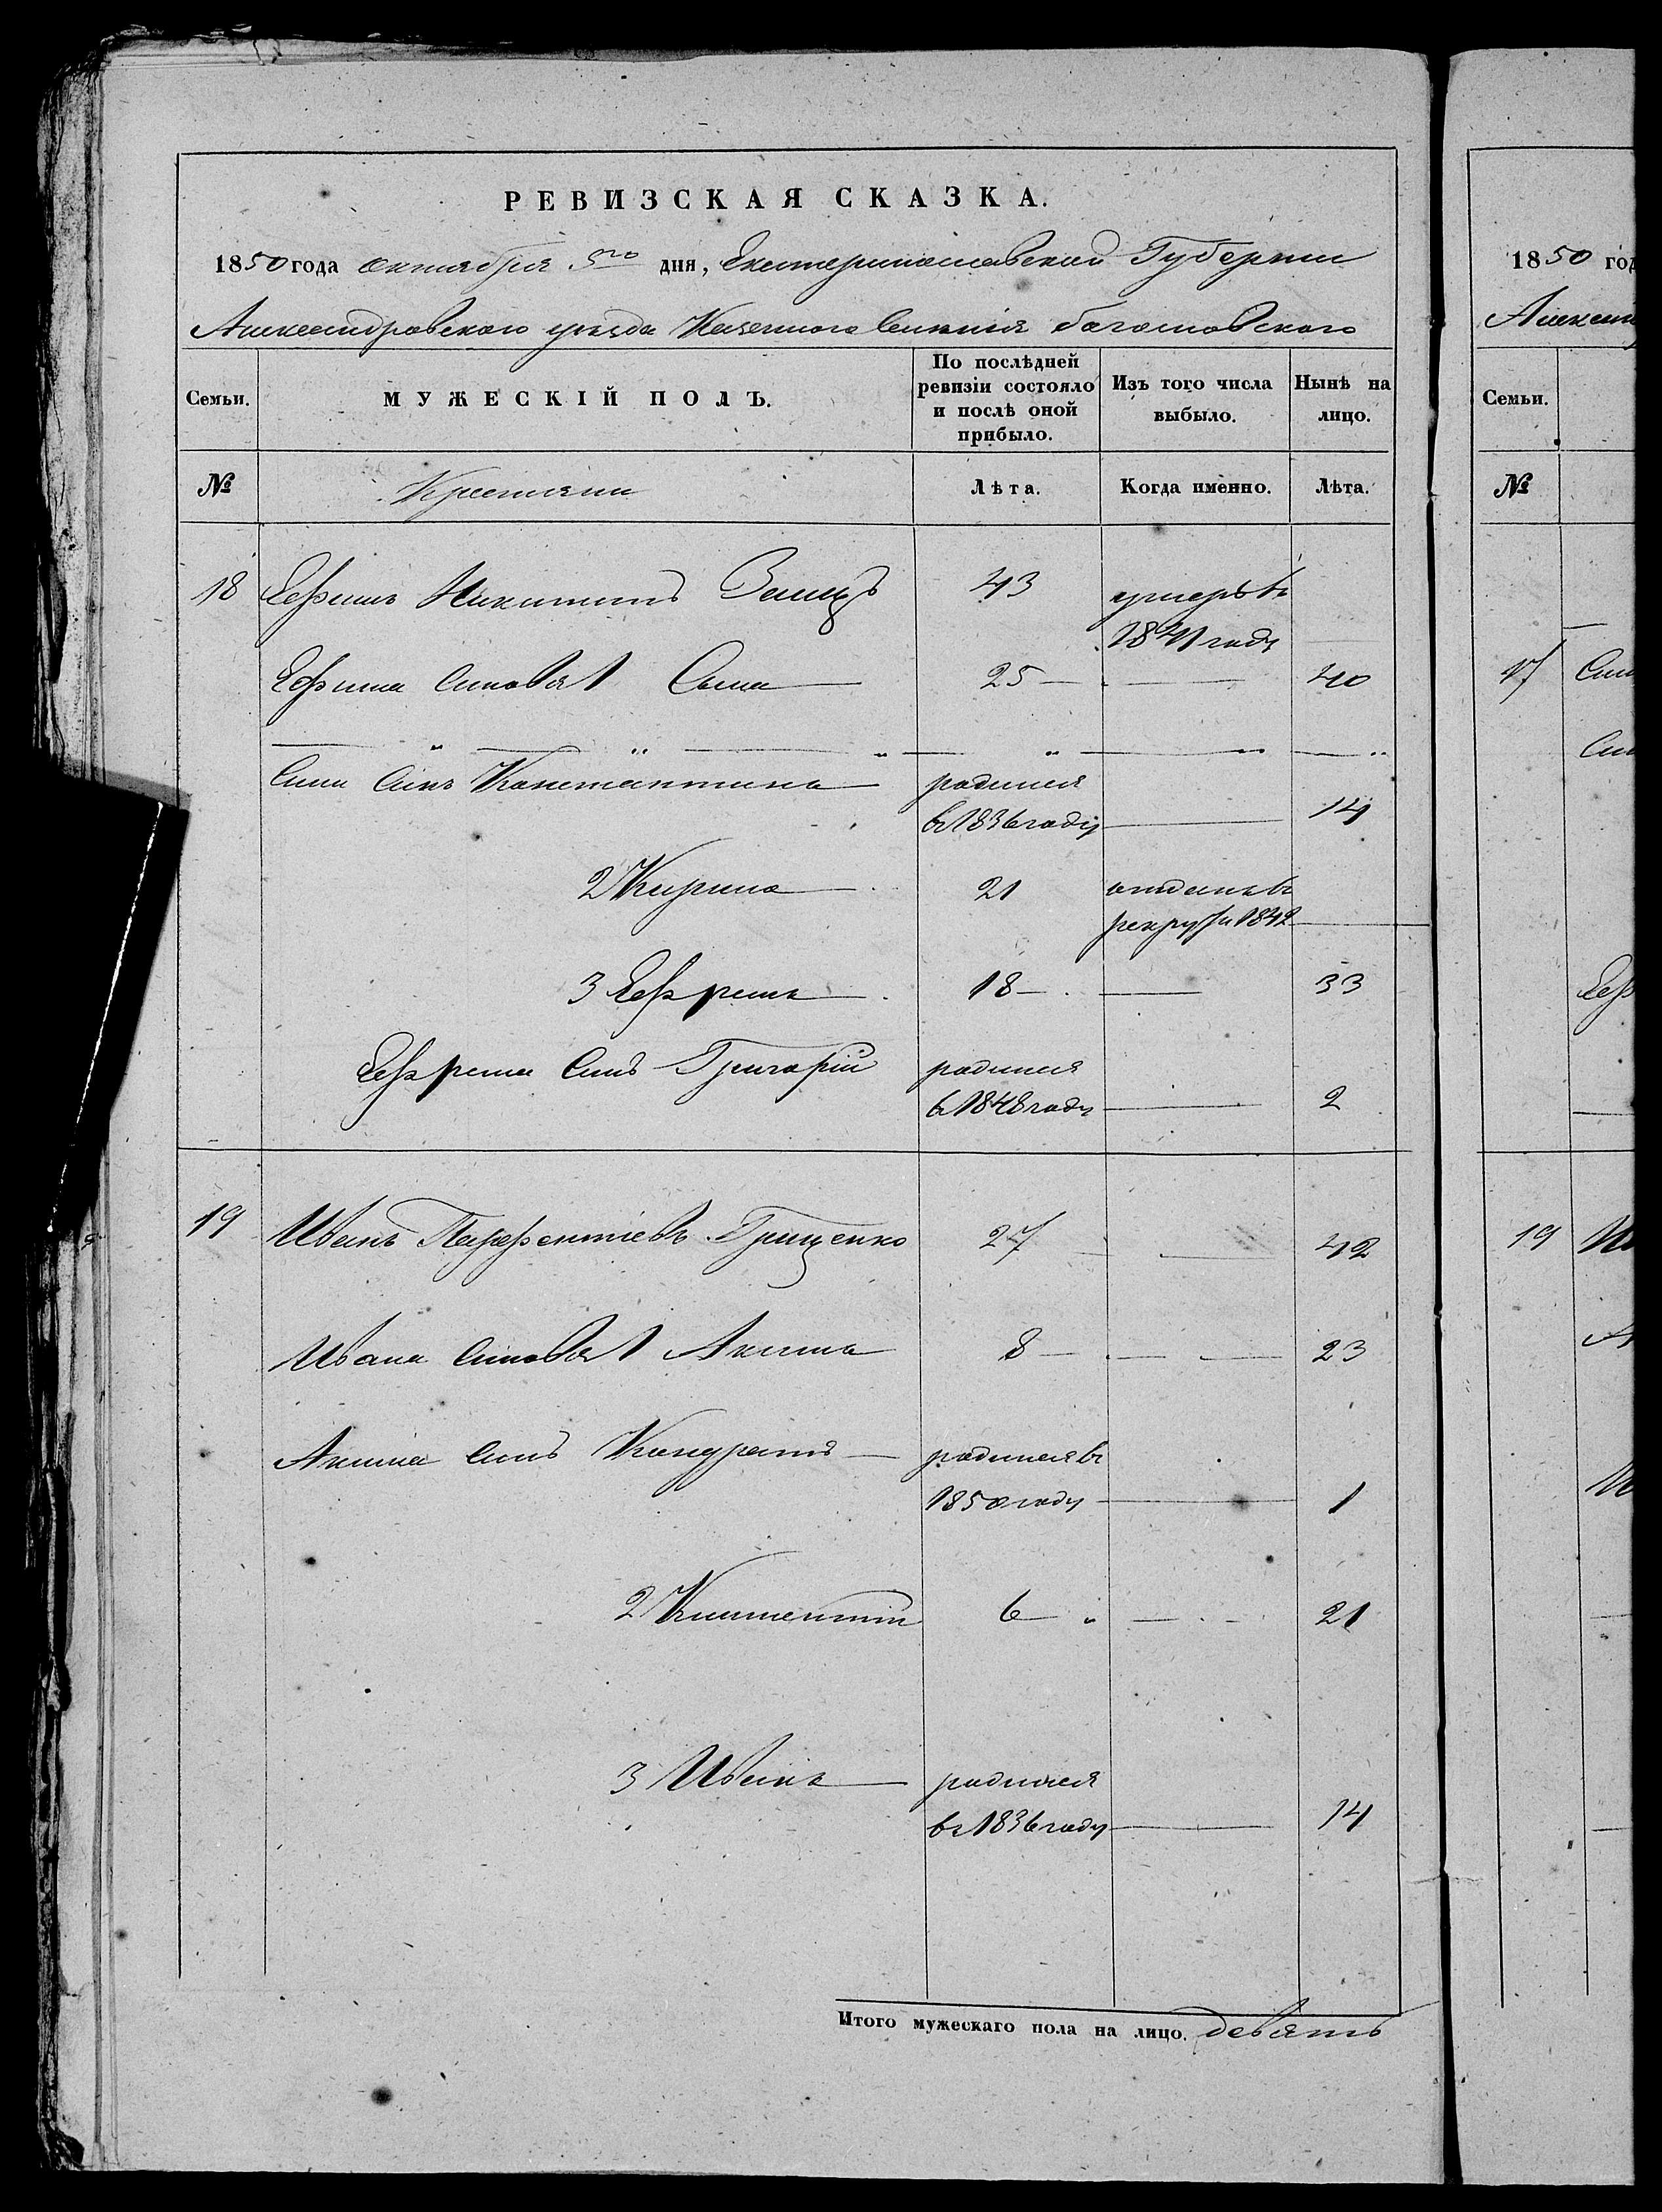 РЕВИЗСКАЯ СКАЗКА.
1850 года октября 5го дня, Екатеринославской Губернии
Александровскаго уезда Казенного Селения
Семьи. МУЖЕСКІЙ ПОЛЪ. По послѣдней ревизіи состояло и послѣ оной прибыло. Изъ того числа выбыло. Нынѣ на лицо.
№ Крестяни Лѣта. Когда именно. Лѣта.
18 Ефимъ Никитинъ Заецъ 43 умеръ въ
1841 году
Ефима синовья 1 Сава 25 — — 40
Сави синъ Константинъ — родился
въ 1836 году — 14
2 Кирила — 21 отданъ въ
рекруты 1842 —
3 Ефремъ — 18 — — 33
Ефрема синъ Григорій родился
въ 1848 году — 2
19 Иванъ Парфентіевъ Грищенко 27 — 42
Ивана синовья 1 Акима 8 — — — 23
Акима синъ Кондратъ — родился въ
1850 году — 1
2 6 — „ — · — 21
3 Иванъ — родился
въ 1836 году — 14
Итого мужескаго пола на лицо. девять
1850 год
Семьи.
№
17
19